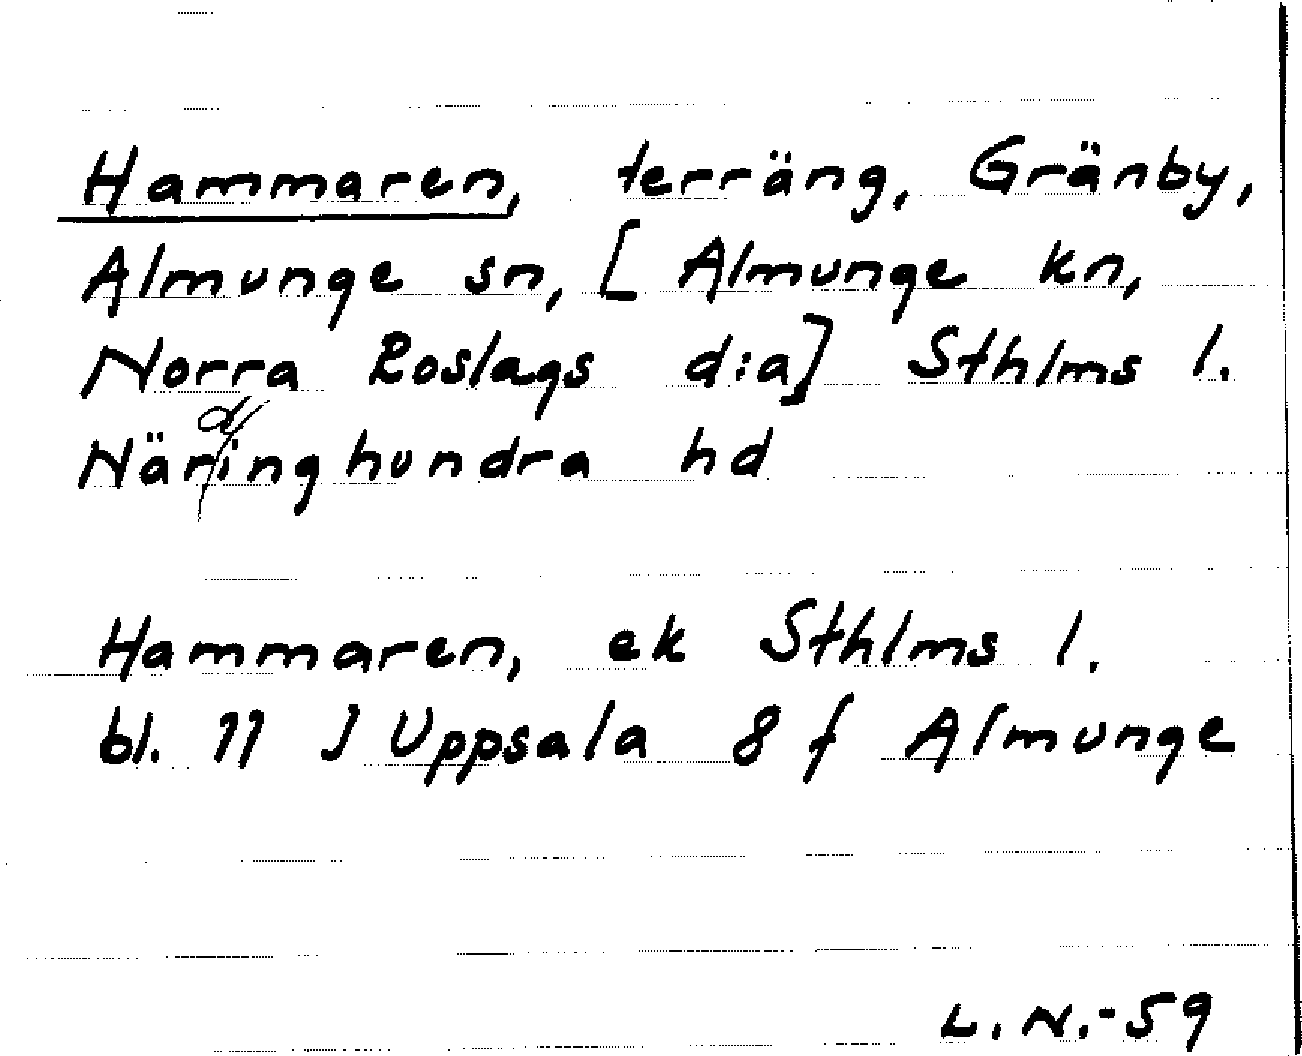 Hammaren, terräng, Gränby,
Almunge sn, [Almunge kn,
Norra Roslags d:a] Sthlms l.
Närdinghundra hd
Hammaren, ek Sthlms l.
bl. 11 J Uppsala 8 f Almunge
L.N.-59